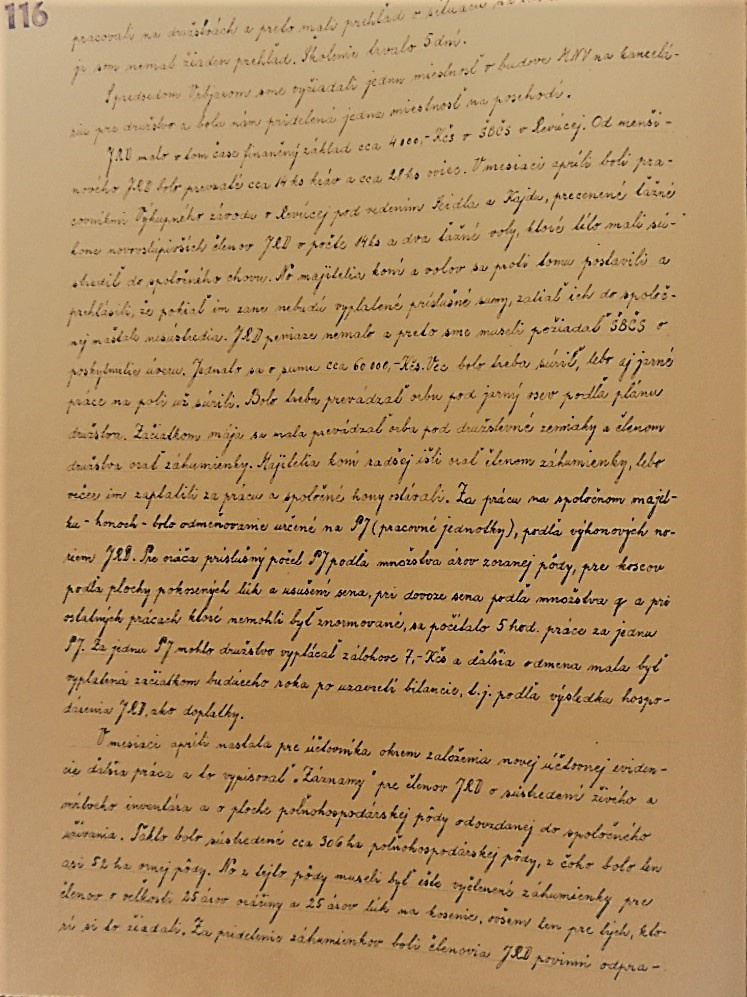 116
pracovali na družstvách a preto mali prehľad o situácii na
ja som nemal žiaden prehľad. Školenie trvalo 5 dní.
S predsedom Vrbjarom sme vyžiadali jednu miestnosť v budove MNV na kancelá-
riu pre družstvo a bola nám pridelená jedna miestnosť na poschodí.
JRD malo v tom čase finančný základ cca 4 000,- Kčs v ŠBČS v Revúcej. Od menši-
nového JRD bolo prevzaté cca 14 ks kráv a cca 28 ks oviec. V mesiaci apríli boli pra-
covníkmi Výkupného závodu v Revúcej pod vedením Seidla a Kajdu, precenené ťažné
kone novovstúpivších členov JRD v počte 14 ks a dva ťažné voly, ktoré títo mali sú-
strediť do spoločného chovu. No majitelia koní a volov sa proti tomu postavili a
prehlásili, že pokiaľ im zane nebudú vyplatené príslušné sumy, zatiaľ ich do spoloč-
nej maštale nesústredia. JRD peniaze nemalo a preto sme museli požiadať ŠBČS o
poskytnutie úveru. Jednalo sa o sumu cca 60 000,- Kčs. Vec bolo treba súriť, lebo aj jarné
práce na poli už súrili. Bolo treba prevádzať orbu pod jarný osev podľa plánu
družstva. Začiatkom mája sa mala prevádzať orba pod družstevné zemiaky a členom
družstva orať záhumienky. Majitelia koní radšej išli orať členom záhumienky, lebo
viecej im zaplatili za prácu a spoločné hony ostávali. Za prácu na spoločnom majet-
ku - honoch - bolo odmeňovanie určené na PJ (pracovné jednotky), podľa výkonových no-
riem JRD. Pre oráča príslušný počet PJ podľa množstva árov zoranej pôdy, pre koscov
podľa plochy pokosených lúk a usušení sena, pri dovoze sena podľa množstva q a pri
ostatných prácach ktoré nemohli byť znormované, sa počítalo 5 hod. práce za jednu
PJ. Za jednu PJ mohlo družstvo vyplácať zálohove 7,- Kčs a ďalšia odmena mala byť
vyplatená začiatkom budúceho roka po uzavretí bilancie, t.j. podľa výsledku hospo-
dárenia JRD, ako doplatky.
V mesiaci apríli nastala pre účtovníka okrem založenia novej účtovnej eviden-
cie ďalšia práca a to vypisovať „Záznamy" pre členov JRD o sústredení živého a
mŕtveho inventára a o ploche poľnohospodárskej pôdy odovzdanej do spoločného
užívania. Takto bolo sústredené cca 306 ha poľnohospodárskej pôdy, z čoho bolo len
asi 52 ha ornej pôdy. No z tejto pôdy museli byť ešte vyčlenené záhumienky pre
členov o veľkosti 25 árov oráčiny a 25 árov lúk na kosenie, ovšem len pre tých, kto-
rí si to žiadali. Za pridelenie záhumienkov boli členovia JRD povinní odpra-